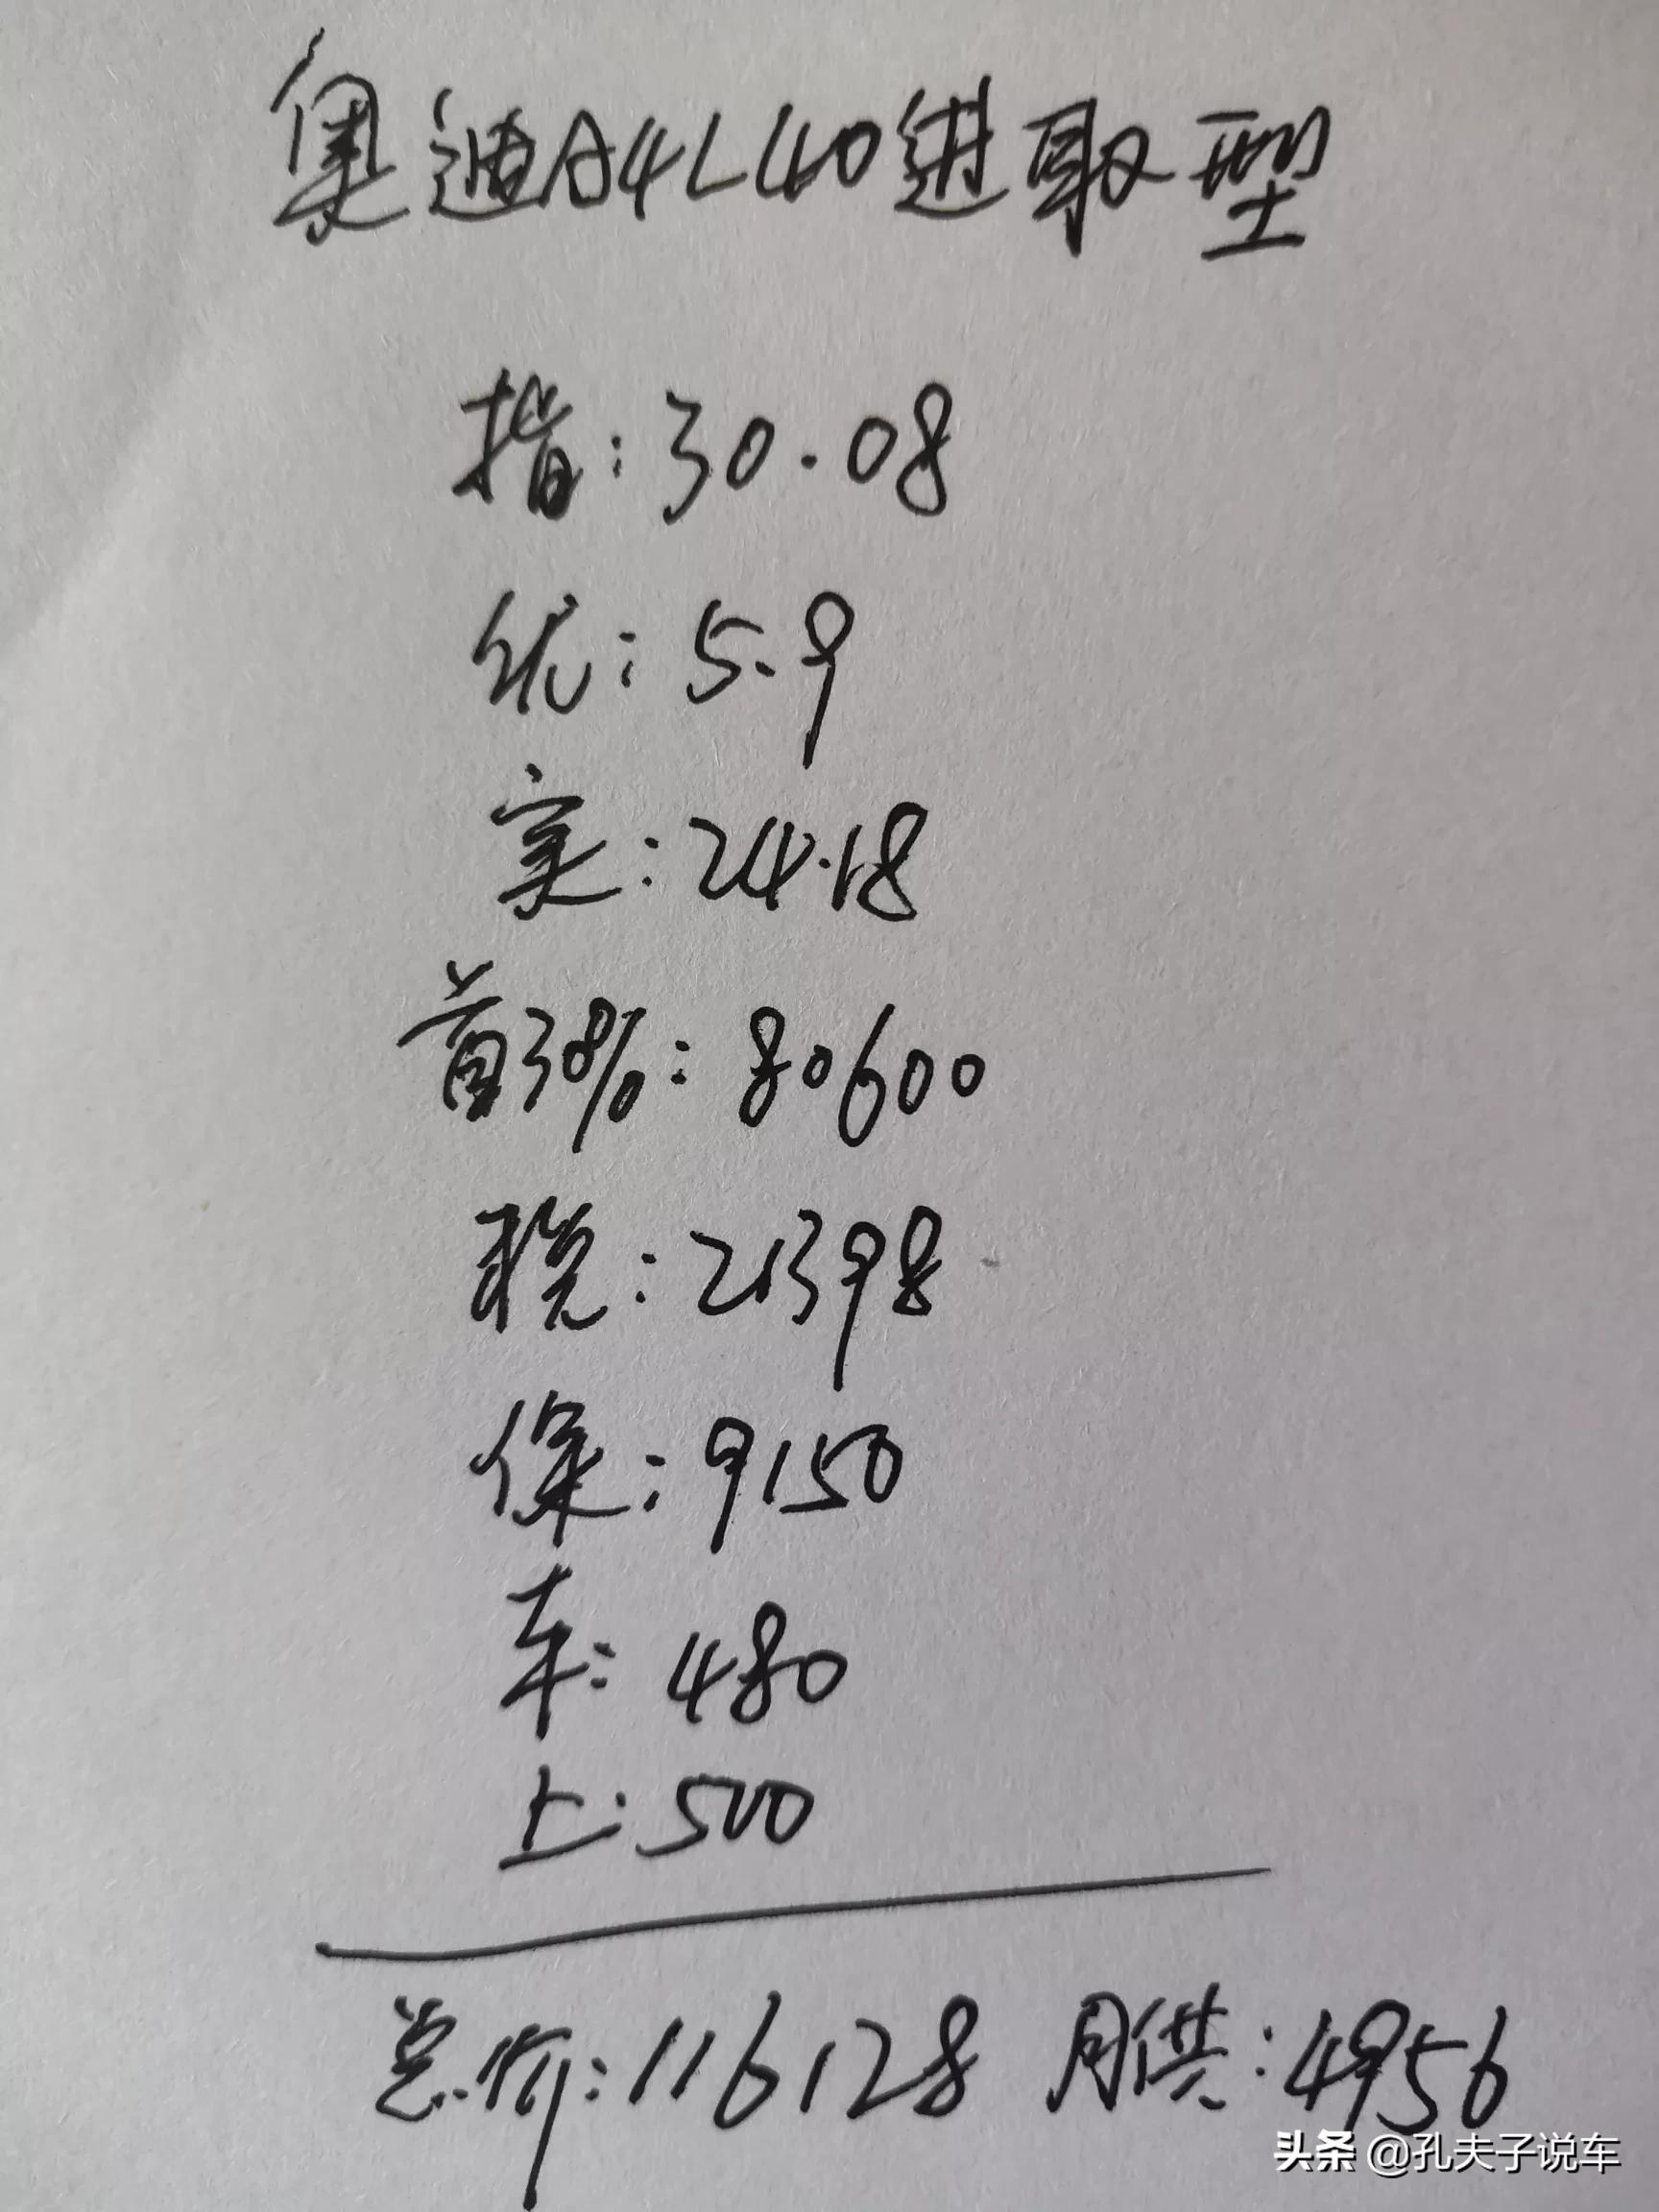 奥迪A4L40进取型
指:30.08
优:5.9
实:24.18
首30%:80600
税:21398
保:9150
车:480
上:500
总价:116128 月供:4956
头条 @孔夫子说车